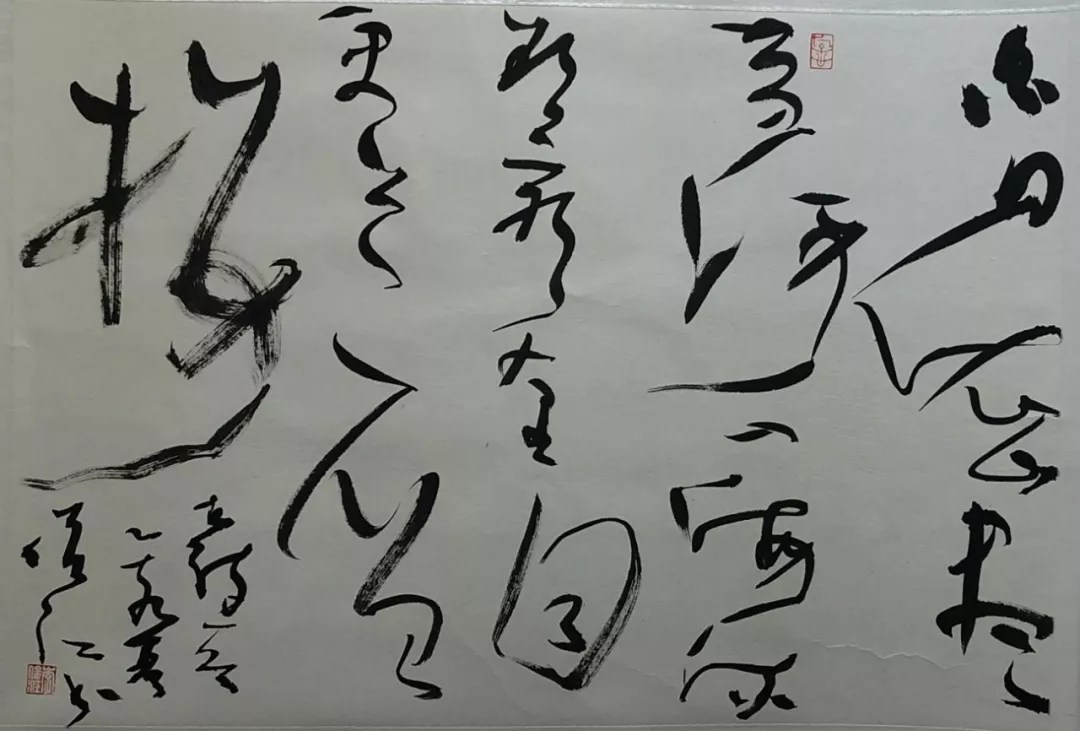 白日依山尽
黄河入海流
欲穷千里目
更上一层
楼
古诗一首